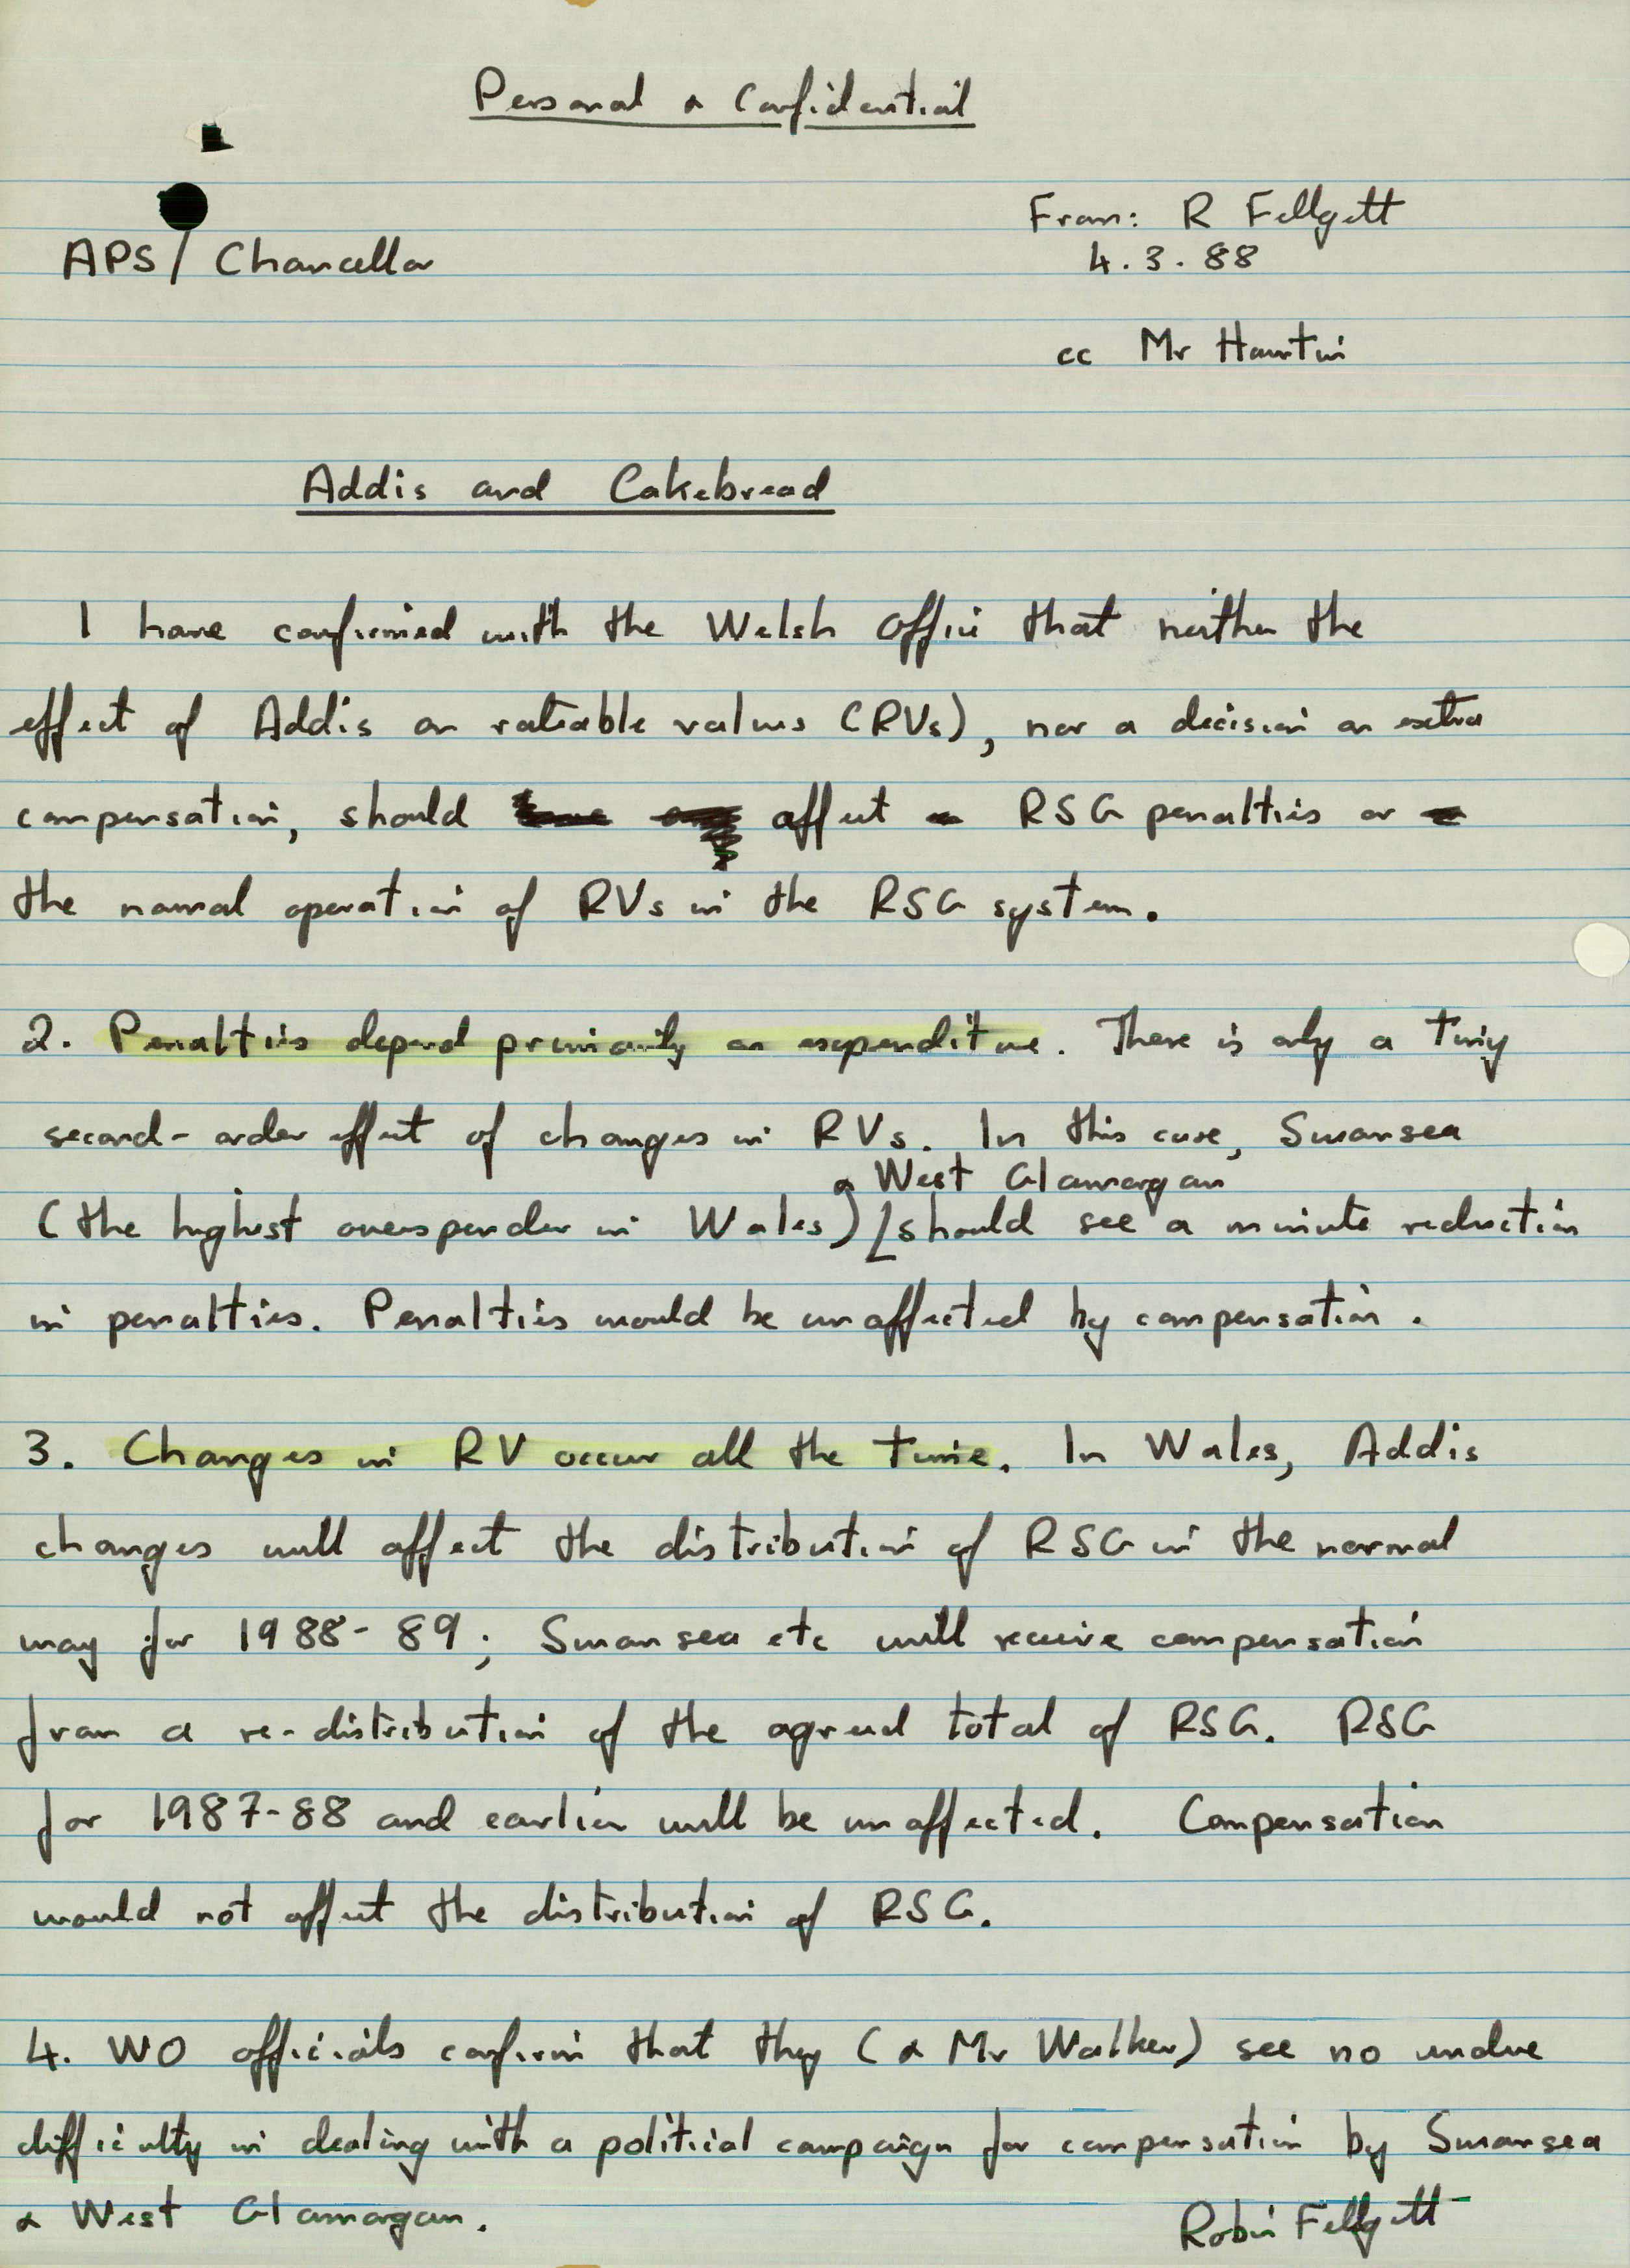 Personal & Confidential
From: R Fellgett
APS / Chancellor
4.3.88
cc Mr Hawtin
Addis and Cakebread
I have confirmed with the Welsh Office that neither the
effect of Addis on rateable values (RVs), nor a decision on extra
compensation, should affect RSG penalties or
the normal operation of RVs in the RSG system.
2. Penalties depend primarily on expenditure. There is only a tiny
second-order effect of changes in RVs. In this case, Swansea
& West Glamorgan
(the highest overspender in Wales) should see a minute reduction
in penalties. Penalties would be unaffected by compensation.
3. Changes in RV occur all the time. In Wales, Addis
changes will affect the distribution of RSG in the normal
way for 1988-89; Swansea etc will receive compensation
from a re-distribution of the agreed total of RSG. RSG
for 1987-88 and earlier will be unaffected. Compensation
would not affect the distribution of RSG.
4. WO officials confirm that they (& Mr Walker) see no undue
difficulty in dealing with a political campaign for compensation by Swansea
& West Glamorgan.
Robin Fellgett